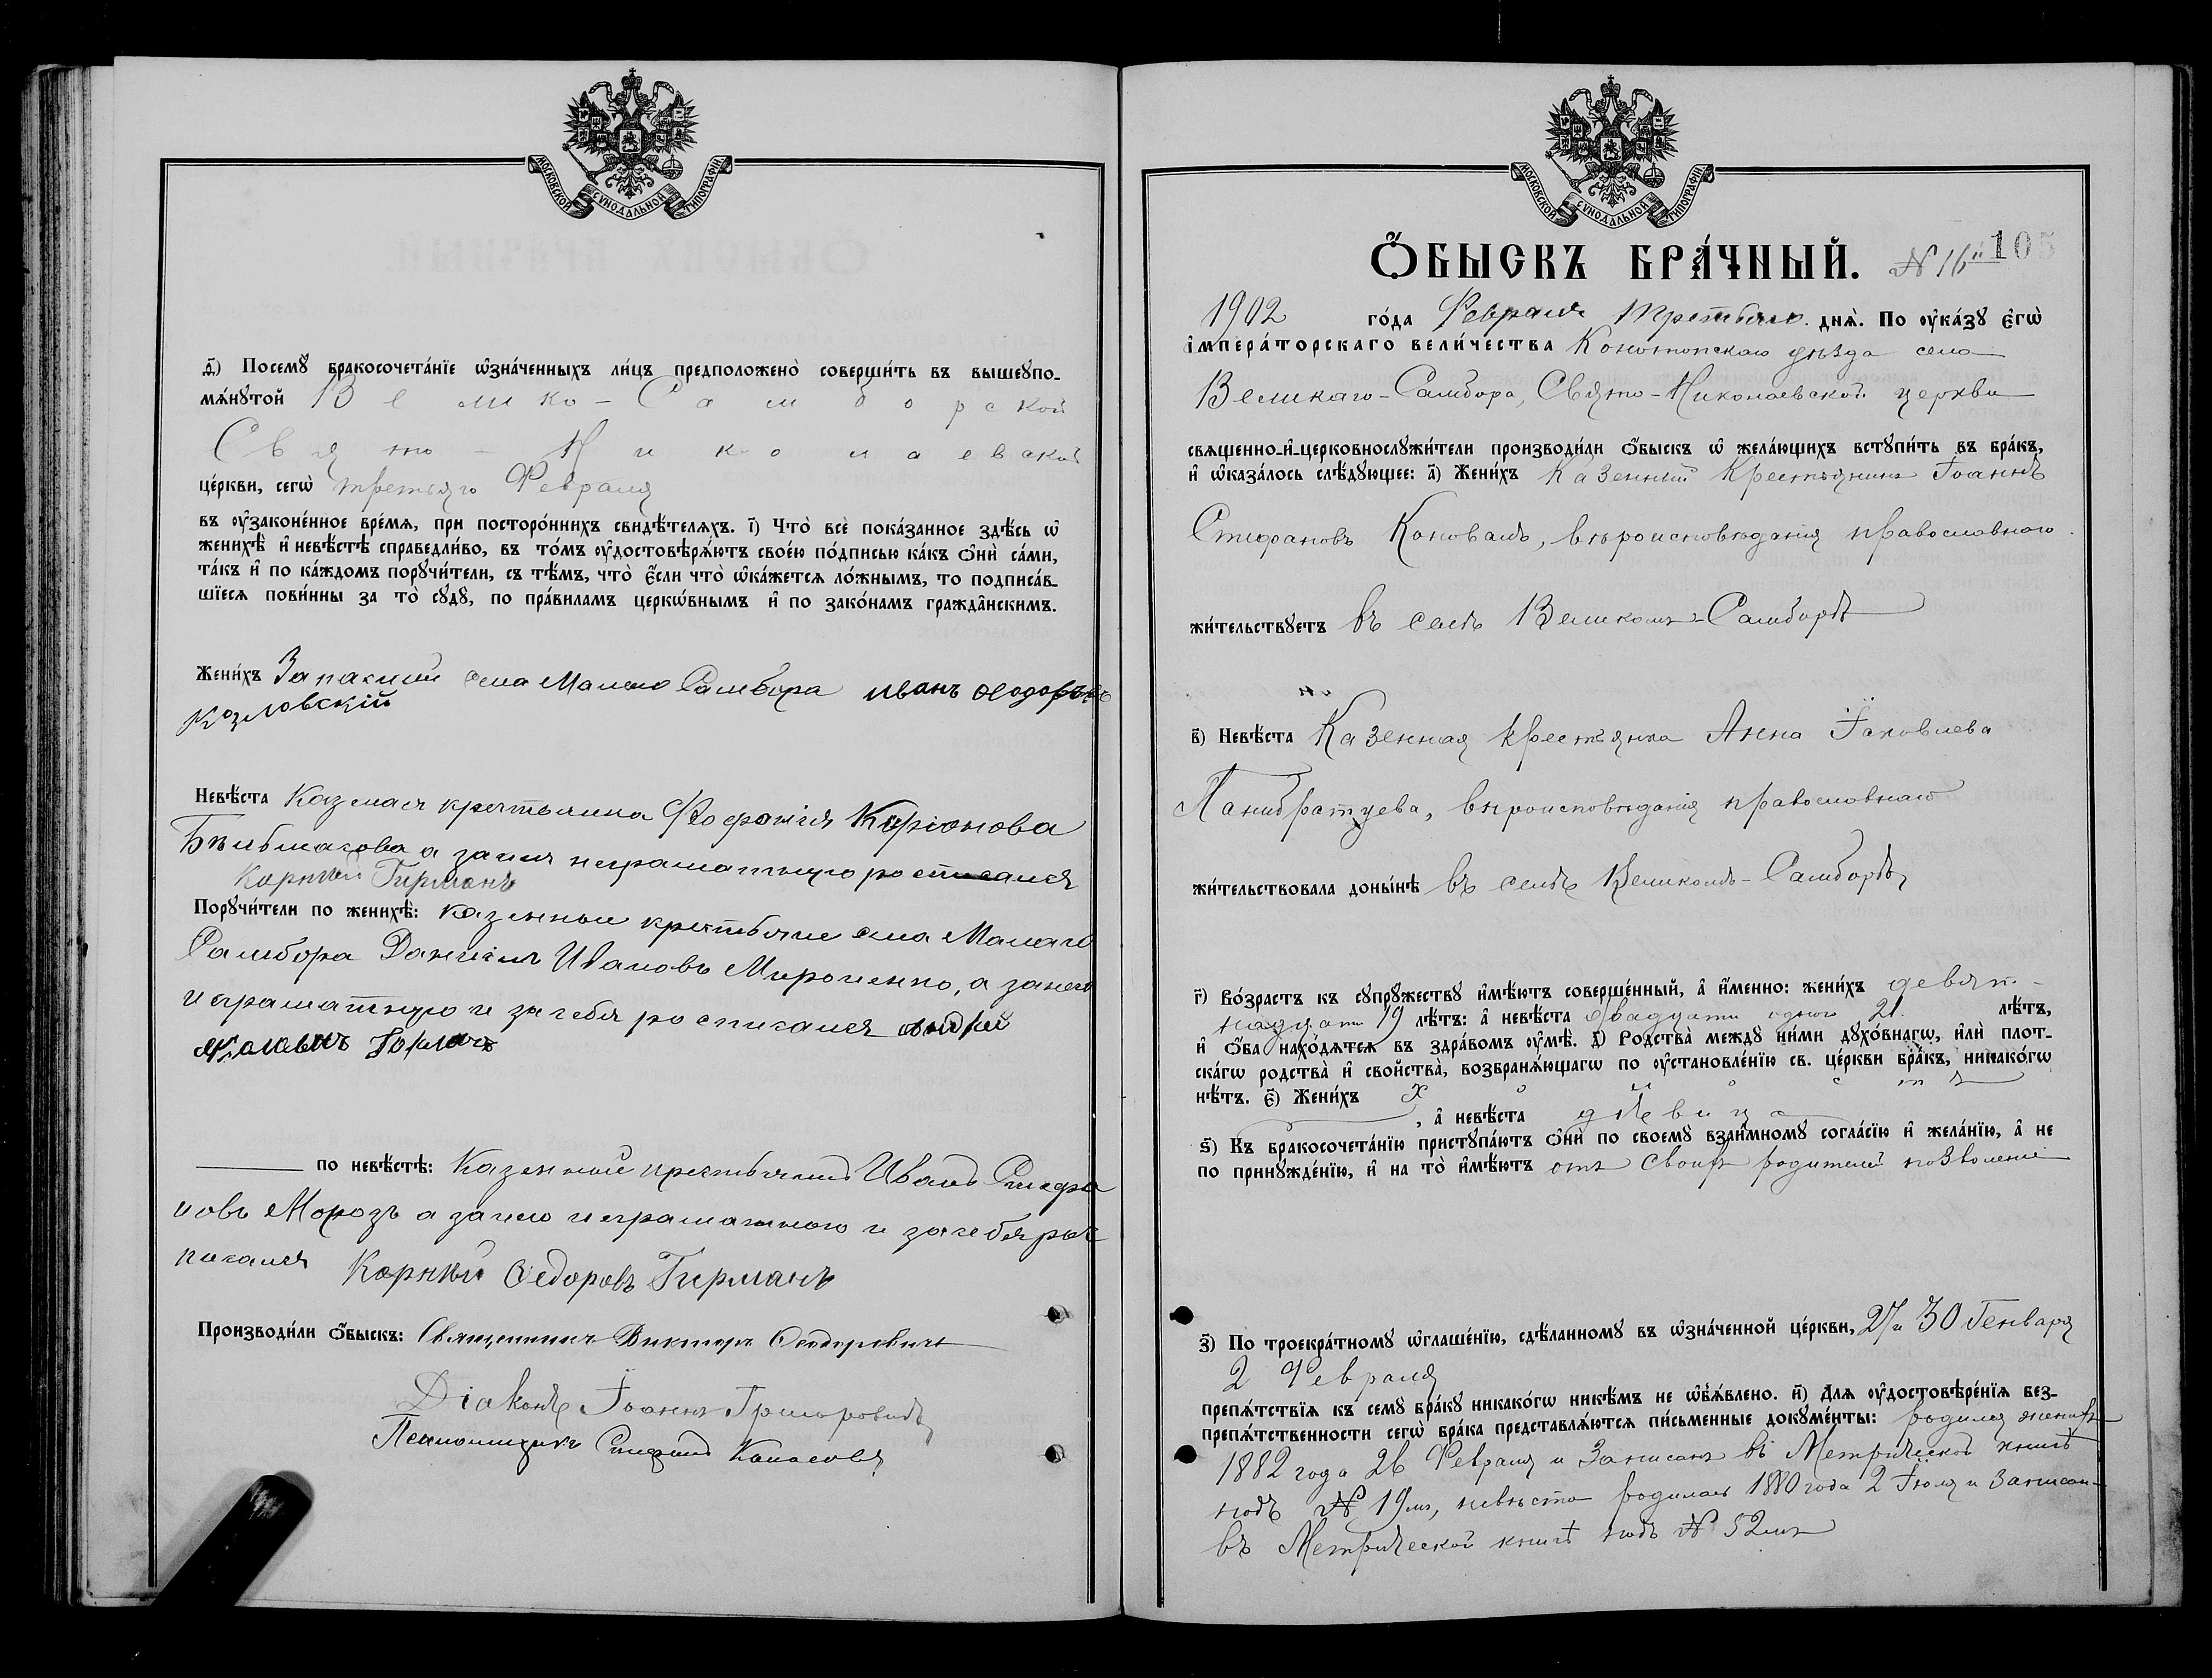 МОСКОВСКОЙ СУНОДАЛЬНОЙ ТИПОГРАФІИ
д҃) Посемꙋ̀ бракосочета́нїе ѡ҆зна́ченныхъ ли́цъ предположено̀ соверши́ть въ вышеꙋпо-
мѧ́нꙋтой Велико-Самборской
Свято-Николаевской
це́ркви, сегѡ̀ третьяго Февраля
въ ᲂу҆законе́нное вре́мѧ, при посторо́ннихъ свидѣ́телѧхъ. і҃) Что̀ всѐ пока́занное здѣ́сь ѡ҆
женихѣ̀ и҆ невѣ́стѣ справедли́во, въ то́мъ ᲂу҆достовѣрѧ́ютъ свое́ю по́дписью ка́къ ѻ҆нѝ са́ми,
та́къ и҆ по ка́ждомъ порꙋчи́тели, съ тѣ́мъ, что̀ є҆́сли что̀ ѡ҆ка́жетсѧ ло́жнымъ, то подписа́в-
шїесѧ пови́нны за то̀ сꙋдꙋ̀, по пра́виламъ церкѡ́внымъ и҆ по зако́намъ гражда́нскимъ.
Жени́хъ Запасный села Малаго Самбора Иванъ Ѳеодоровъ
Козловскій
Невѣ́ста Казенная крестьянка
а за нея неграмотную росписался
Корній Гирманъ
Порꙋчи́тели по женихѣ̀: казенные крестьяне села Малаго
Самбора Даніилъ Ивановъ Мироненко, а за него
неграмотного и за себя росписался Андрей
по невѣ́стѣ: Казенный крестьянинъ Иванъ Стефа
новъ Морозъ а за него неграмотного и за себя рос
писался Корній Ѳедоровъ Гирманъ
Производи́ли ѻ҆́быскъ: Священникъ Викторъ Ѳеодоровичъ
Діаконъ Іоаннъ Григоровичъ
Псаломщикъ Стефанъ
МОСКОВСКОЙ СУНОДАЛЬНОЙ ТИПОГРАФІИ
Ѻ҆́БЫСКЪ БРА́ЧНЫЙ. № 16й 105
1902 го́да Февраля третьяго днѧ̀. По ᲂу҆ка́зꙋ є҆гѡ̀
і҆мпера́торскаго вели́чества Конотопскаго уѣзда села
Великаго-Самбора, Свято-Николаевской церкви
свѧщенно-и҆-церковнослꙋжи́тели производи́ли ѻ҆́быскъ ѡ҆ жела́ющихъ встꙋпи́ть въ бра́къ,
и҆ ѡ҆каза́лось слѣ́дꙋющее: а҃) Жени́хъ Казенный Крестьянинъ Іоаннъ
Стефановъ Коновалъ, вѣроисповѣданія православного
жи́тельствꙋетъ въ селѣ Великомъ-Самборѣ
в҃) Невѣ́ста Казенная крестьянка Анна Іаковлева
Панибратцева, вѣроисповѣданія православнаго
жи́тельствовала доны́нѣ въ селѣ Великомъ-Самборѣ
г҃) Во́зрастъ къ сꙋпрꙋ́жествꙋ и҆мѣ́ютъ соверше́нный, а҆ и҆́менно: жени́хъ девят-
надцати 19 лѣ́тъ: а҆ невѣ́ста двадцати одного 21 лѣ́тъ,
и҆ ѻ҆́ба нахо́дѧтсѧ въ здра́вомъ ᲂу҆мѣ̀. д҃) Родства̀ междꙋ̀ ни́ми дꙋхо́внагѡ, и҆лѝ плот-
ска́гѡ родства̀ и҆ свойства̀, возбранѧ́ющагѡ по ᲂу҆становле́нїю св. це́ркви бра́къ, никако́гѡ
нѣ́тъ. є҃) Жени́хъ холостъ
, а҆ невѣ́ста дѣвица
ѕ҃) Къ бракосочета́нїю пристꙋпа́ютъ ѻ҆нѝ по своемꙋ̀ взаи́мномꙋ согла́сїю и҆ жела́нїю, а҆ не
по принꙋжде́нїю, и҆ на то̀ и҆мѣ́ютъ отъ своихъ родителей позволеніе
з҃) По троекра́тномꙋ ѡ҆глаше́нїю, сдѣ́ланномꙋ въ ѡ҆зна́ченной це́ркви, 27 и 30 Генваря
2 Февраля
препѧ́тствїѧ къ семꙋ̀ бра́кꙋ никако́гѡ никѣ́мъ не ѡ҆б̾ѧ́влено. и҃) Длѧ ᲂу҆достовѣре́нїѧ без-
препѧ́тственности сегѡ̀ бра́ка представлѧ́ютсѧ пи́сьменные докꙋме́нты: родился женихъ
1882 года 26 Февраля и Записанъ въ Метрической книгѣ
подъ № 19мъ, невѣста родилась 1880 года 2 Іюля и Записан-
въ Метрической книгѣ подъ № 52мъ